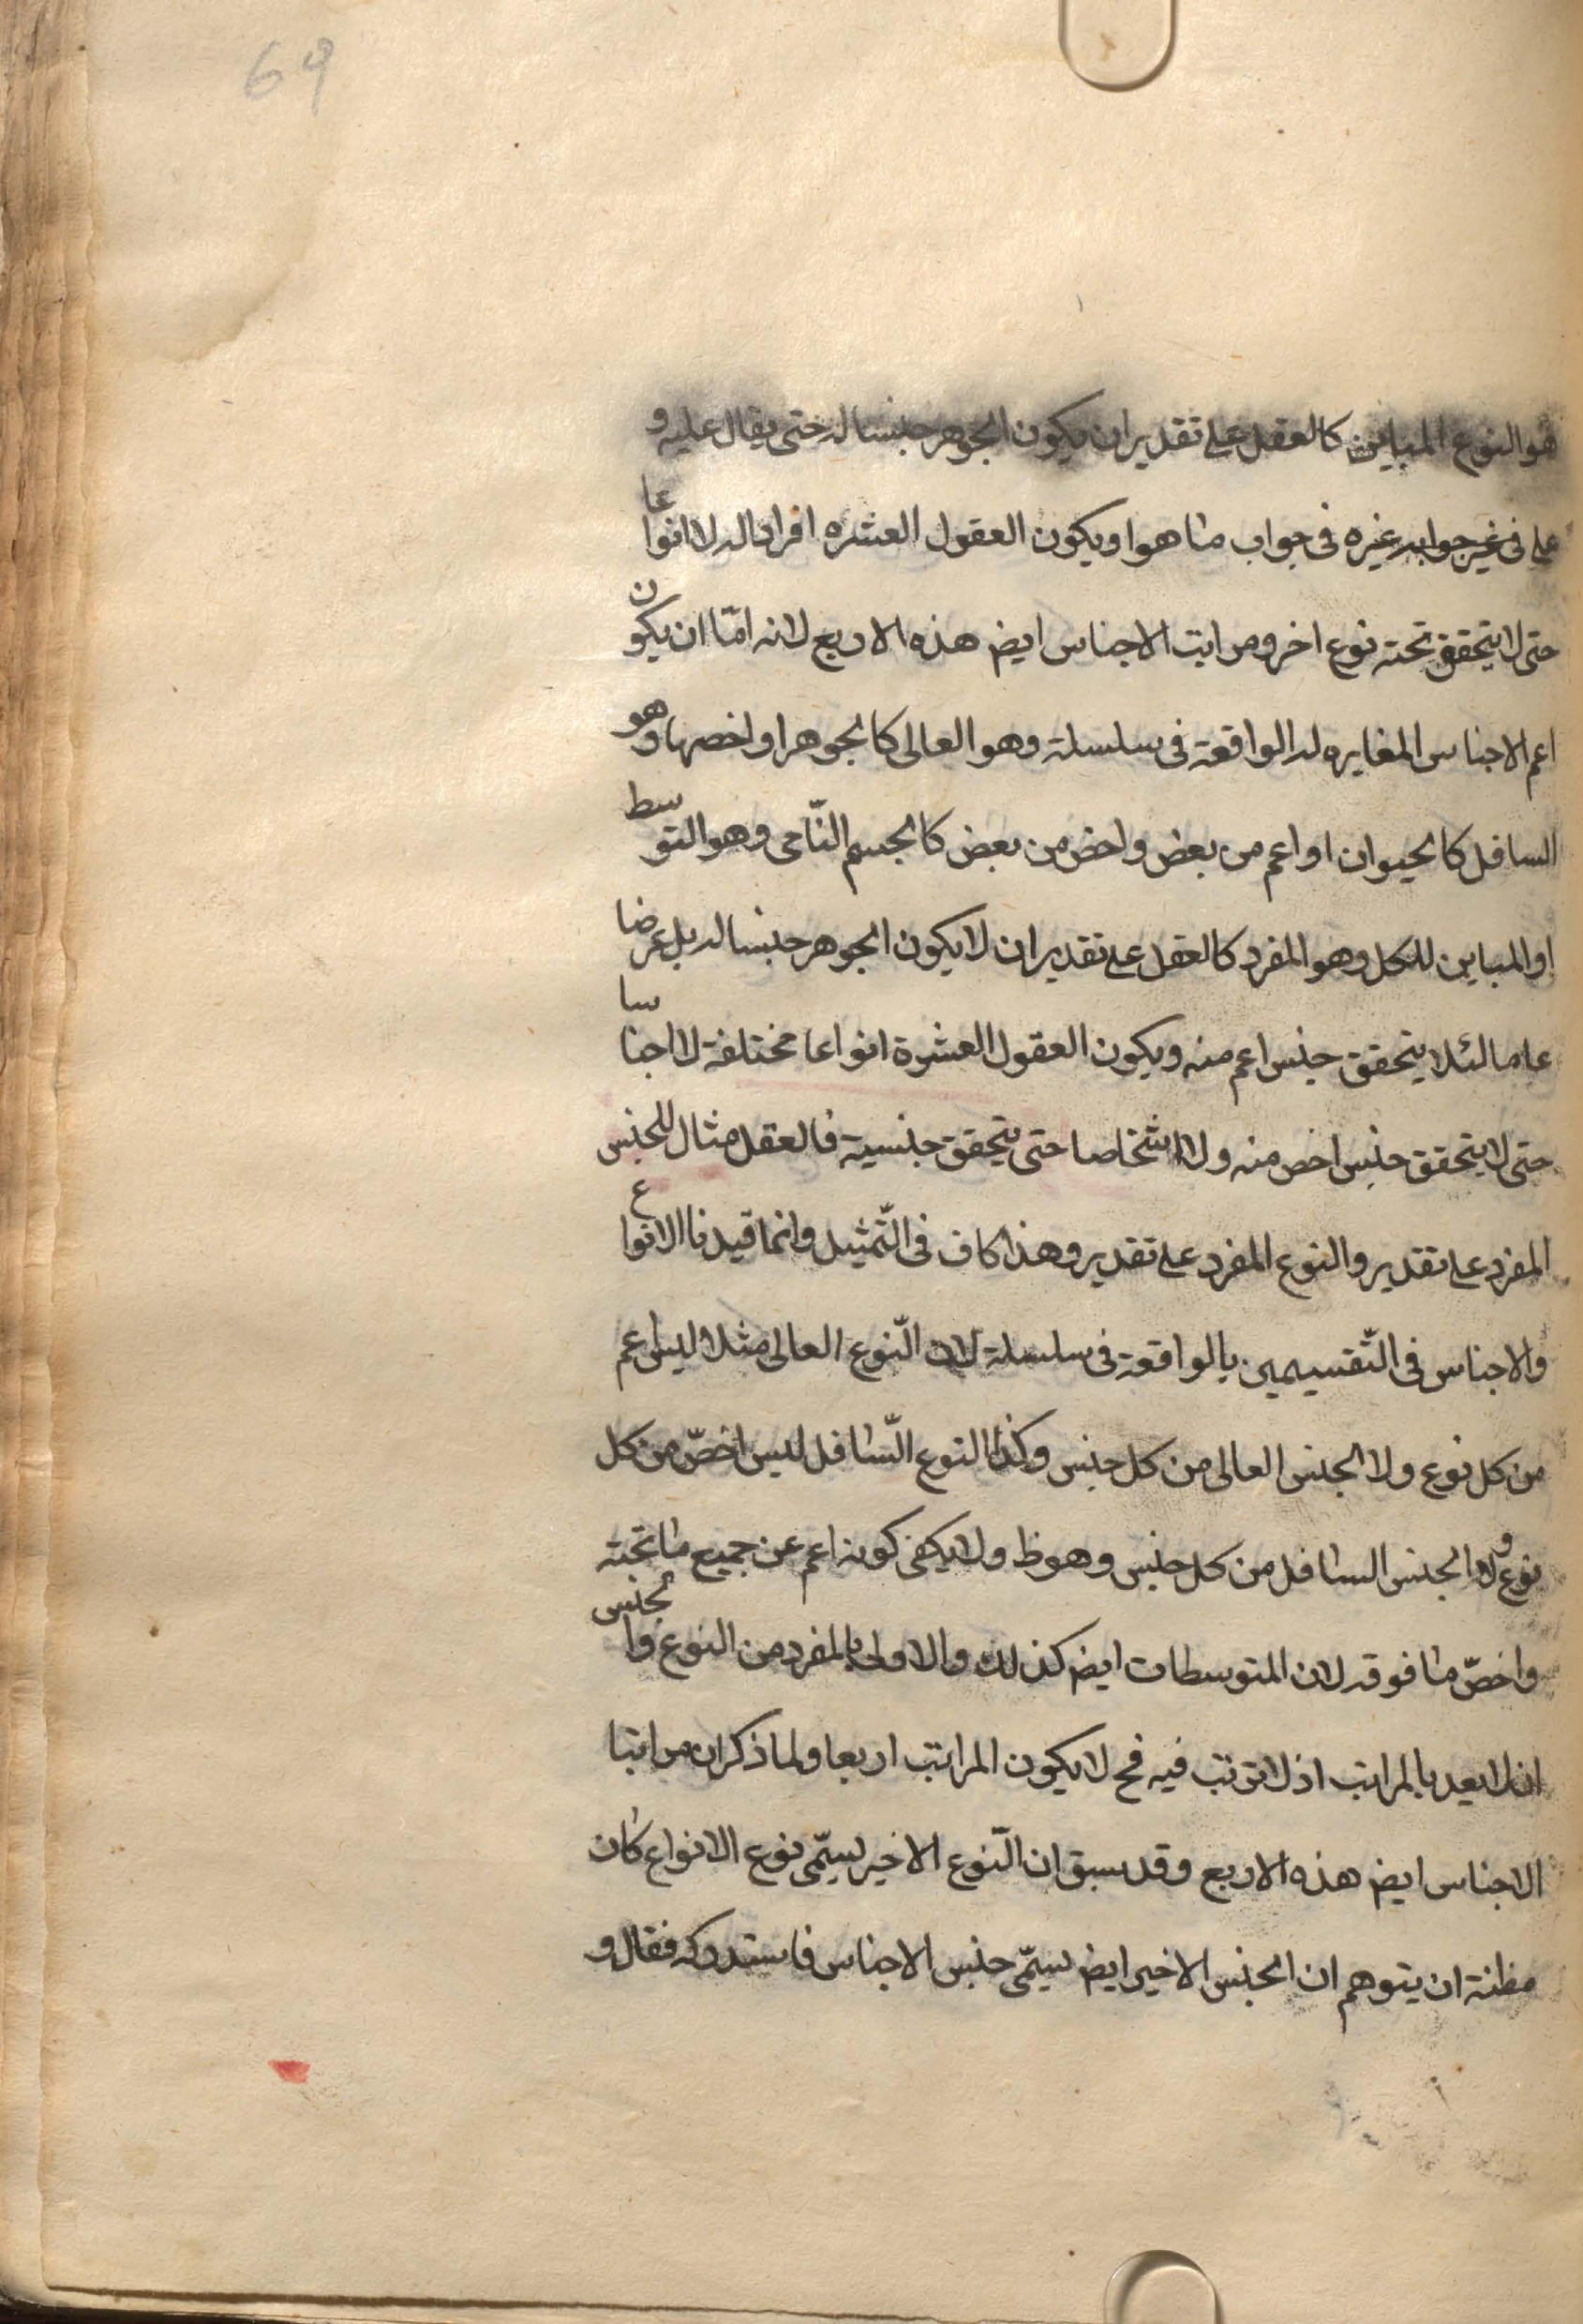 69
هو النوع المباين كالعقل على تقدير ان يكون الجوهر جنسا له حتى يقال عليه و
على فى غير جوابه غيره فى جواب ما هو او يكون العقول العشره افرادا له لا انواعا
حتى لا يتحقق تحته نوع اخر ومراتب الاجناس ايض هذه الاربع لانه امّا ان يكون
اعم الاجناس المغايره له الواقعة فى سلسلة وهو العالى كالجوهر او اخصها وهو
السافل كالحيوان او اعم من بعض واخص من بعض كالجسم النّامى وهو التوسط
او المباين للكل وهو المفرد كالعقل على تقدير ان لا يكون الجوهر جنسا له بل عرضا
عاما لئلا يتحقق جنس اعم منه ويكون العقول العشرة انواعا مختلفة لا اجناسا
حتى لا يتحقق جنس اخص منه ولا اشخاصا حتى يتحقق جنسية فالعقل مثال للجنس
المفرد على تقدير والنوع المفرد على تقدير وهذا كاف فى التّمثيل وانما قيدنا الانواع
والاجناس فى التّقسيمين بالواقعة فى سلسلة لان النّوع العالى مثلا ليس اعم
من كل نوع ولا الجنس العالى من كل جنس وكذا النوع السّافل ليس اخصّ من كل
نوع ولا الجنس السافل من كل جنس وهو ظ ولا يكفى كونه اعم عن جميع ما تحته
واخصّ ما فوقه لان المتوسطات ايض كذلك والاولى بالمفرد من النوع والجنس
ان لا يعد بالمراتب اذ لا ترتب فيه فح لا يكون المراتب اربعا ولما ذكر ان مراتبا
الاجناس ايض هذه الاربع وقد سبق ان النّوع الاخير يسمّى نوع الانواع كان
مظنة ان يتوهم ان الجنس الاخير ايض يسمّى جنس الاجناس فاستدركه فقال و